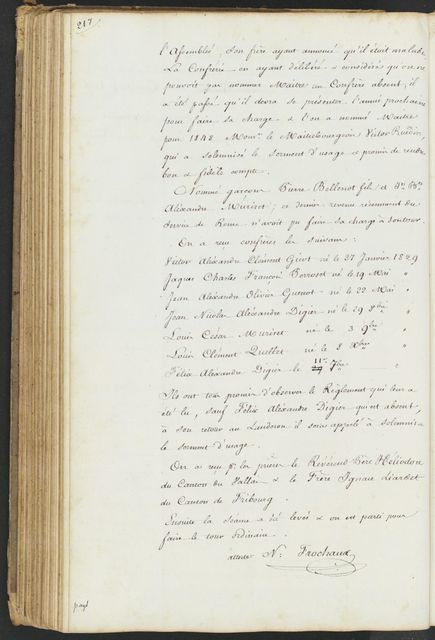 217
l'Assemblée, son frère ayant annoncé qu'il étoit malade.
La Confrérie en ayant délibéré & considéré qu'on ne
pouvoit pas nommer Maitre un Confrère absent, il
a été passé qu'il devra se présenter l'année prochaine
pour faire sa charge & l'on a nommé Maitre
pour 1848 Monsr. le Maitrebourgeois Victor Ruedin,
qui a solemnisé le serment d'usage & promis de rendre
bon & fidèle compte.
Nommé garçon Pierre Bellenot fils &
Alexandre Muriset; ce dernier revenu récemment du
Service de Rome n'avoit pu faire sa charge à son tour.
On a reçu confrères les suivans:
Victor Alexandre Clément Girot né le 27 Janvier 1829
Jaques Charles François Perroset né le 19 Mai "
Jean Alexandre Olivier Guenot né le 22 Mai "
Jean Nicolas Alexandre Digier né le 29 8bre "
Louis César Muriset né le 3 9bre "
Louis Clément Quellet né le 8 Xbre "
Félix Alexandre Digier le 11 7bre "
Ils ont tous promis d'observer le Règlement qui leur a
été lu, sauf Félix Alexandre Digier qui est absent,
à son retour au Landeron il sera appelé à solemniser
le serment d'usage.
On a reçu pr. les prières le Révérend Père Héliodore
du Canton du Vallais & le Frère Ignace
du Canton de Fribourg.
Ensuite la séance a été levée & on est parti pour
faire le tour ordinaire.
atteste N: Frochaux
payé